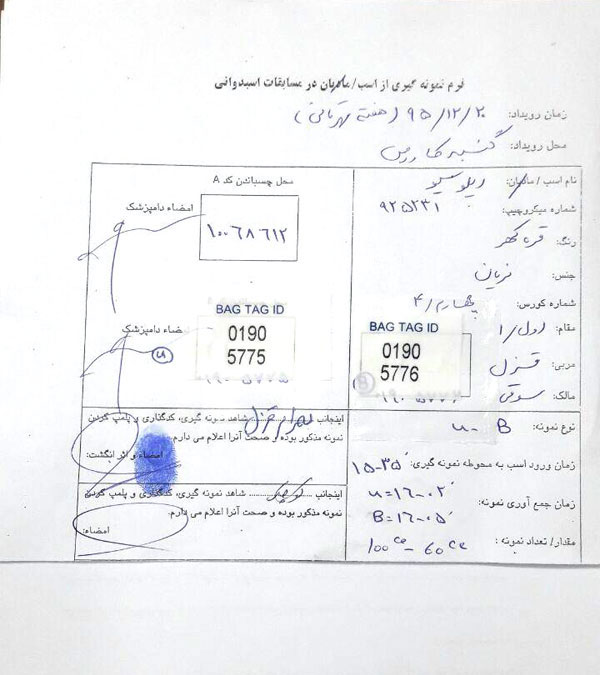 فرم نمونه گیری از اسب / مادیان در مسابقات اسبدوانی
زمان رویداد: ۹۵/۱۲/۲۰ (هفته قهرمانی)
محل رویداد: گنبد کاووس
نام اسب / مادیان:
شماره میکروچیپ: ۹۲۵۲۳۱
رنگ: قره کهر
جنس: نریان
شماره کورس: چهارم / ۴
مقام: اول / ۱
مربی: قزل
مالک: سوقی
محل چسباندن کد A
امضاء دامپزشک
۱۰۰۶۸۶۱۲
امضاء دامپزشک
u
BAG TAG ID
0190
5775
BAG TAG ID
0190
5776
B
نوع نمونه: u - B
زمان ورود اسب به محوطه نمونه گیری: ۱۵-۳۵
زمان جمع آوری نمونه: u=۱۶-۰۲
B=۱۶-۰۵
مقدار / تعداد نمونه: 100 cc - 60 cc
اینجانب قزل شاهد نمونه گیری، کدگذاری و پلمپ کردن
نمونه مذکور بوده و صحت آنرا اعلام می دارم.
امضاء و اثر انگشت:
اینجانب شاهد نمونه گیری، کدگذاری و پلمپ کردن
نمونه مذکور بوده و صحت آنرا اعلام می دارم.
امضاء: